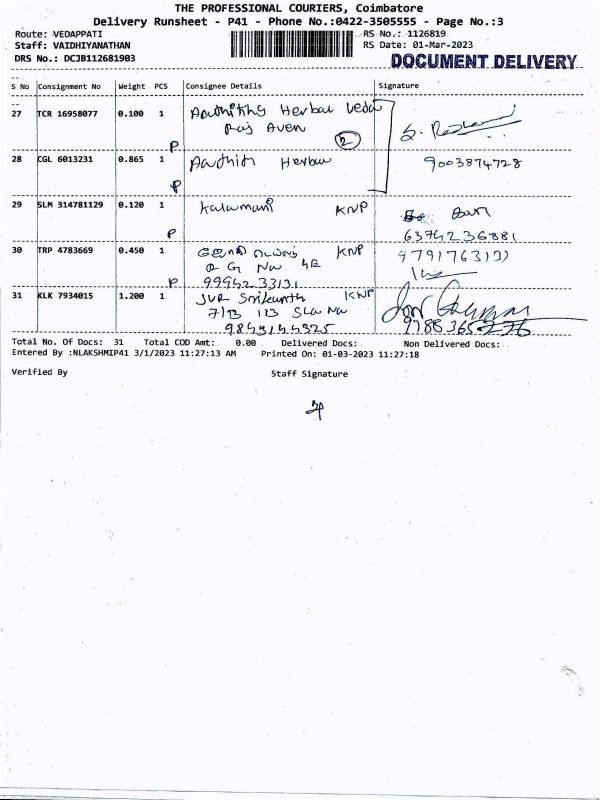 THE PROFESSIONAL COURIERS, Coimbatore
Delivery Runsheet - P41 - Phone No.:0422-3505555 - Page No.:3
Route: VEDAPPATI
RS No.: 1126819
Staff: VAIDHIYANATHAN
RS Date: 01-Mar-2023
DRS No.: DCJB112681903
DOCUMENT DELIVERY
S No Consignment No Weight PCS Consignee Details Signature
27 TCR 16958077 0.100 1 Herbal Veda
Raj Aven
2
P
28 CGL 6013231 0.865 1 9003874728
P
29 SLM 314781129 0.120 1 Kalamani KNP
P 6374236881
30 TRP 4783669 0.450 1 KNP
P
31 KLK 7934015 1.200 1 JVR Srikanth KNP
9788365276
Total No. Of Docs: 31 Total COD Amt: 0.00 Delivered Docs: Non Delivered Docs:
Entered By :NLAKSHMIP41 3/1/2023 11:27:13 AM Printed On: 01-03-2023 11:27:18
Verified By Staff Signature